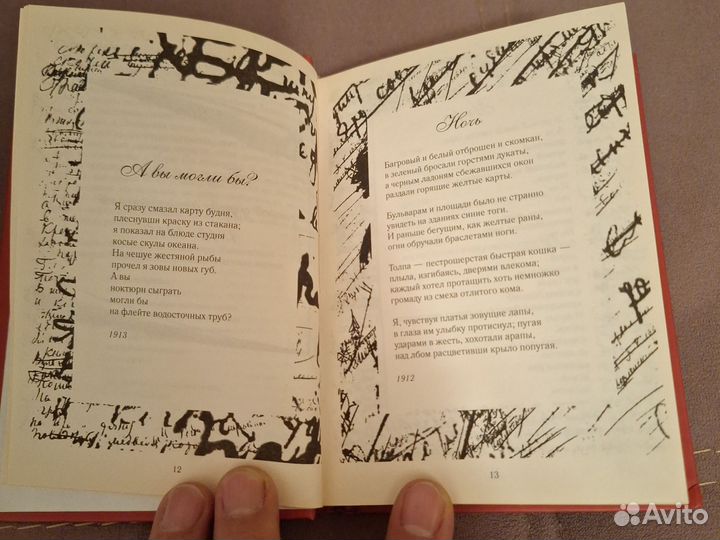 А вы могли бы?
Я сразу смазал карту будня,
плеснувши краску из стакана;
я показал на блюде студня
косые скулы океана.
На чешуе жестяной рыбы
прочел я зовы новых губ.
А вы
ноктюрн сыграть
могли бы
на флейте водосточных труб?
1913
12
Ночь
Багровый и белый отброшен и скомкан,
в зеленый бросали горстями дукаты,
а черным ладоням сбежавшихся окон
раздали горящие желтые карты.
Бульварам и площади было не странно
увидеть на зданиях синие тоги.
И раньше бегущим, как желтые раны,
огни обручали браслетами ноги.
Толпа — пестрошерстая быстрая кошка —
плыла, изгибаясь, дверями влекома;
каждый хотел протащить хоть немножко
громаду из смеха отлитого кома.
Я, чувствуя платья зовущие лапы,
в глаза им улыбку протиснул; пугая
ударами в жесть, хохотали арапы,
над лбом расцветивши крыло попугая.
1912
13
Avito